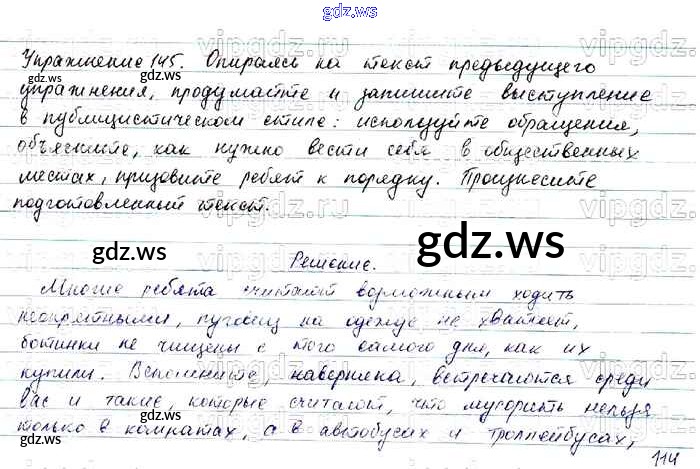 gdz.ws
Упражнение 145. Опираясь на текст предыдущего
упражнения, продумайте и запишите выступление
в публицистическом стиле: используйте обращения,
объясните, как нужно вести себя в общественных
местах, призовите ребят к порядку. Произнесите
подготовленный текст.
gdz.ws gdz.ws
Решение.
Многие ребята считают возможным ходить
неопрятными, пуговиц на одежде не хватает,
ботинки не чищены с того самого дня, как их
купили. Вспомните, наверняка, встречаются среди
вас и такие, которые считают, что мусорить нельзя
только в комнатах, а в автобусах и троллейбусах,
114